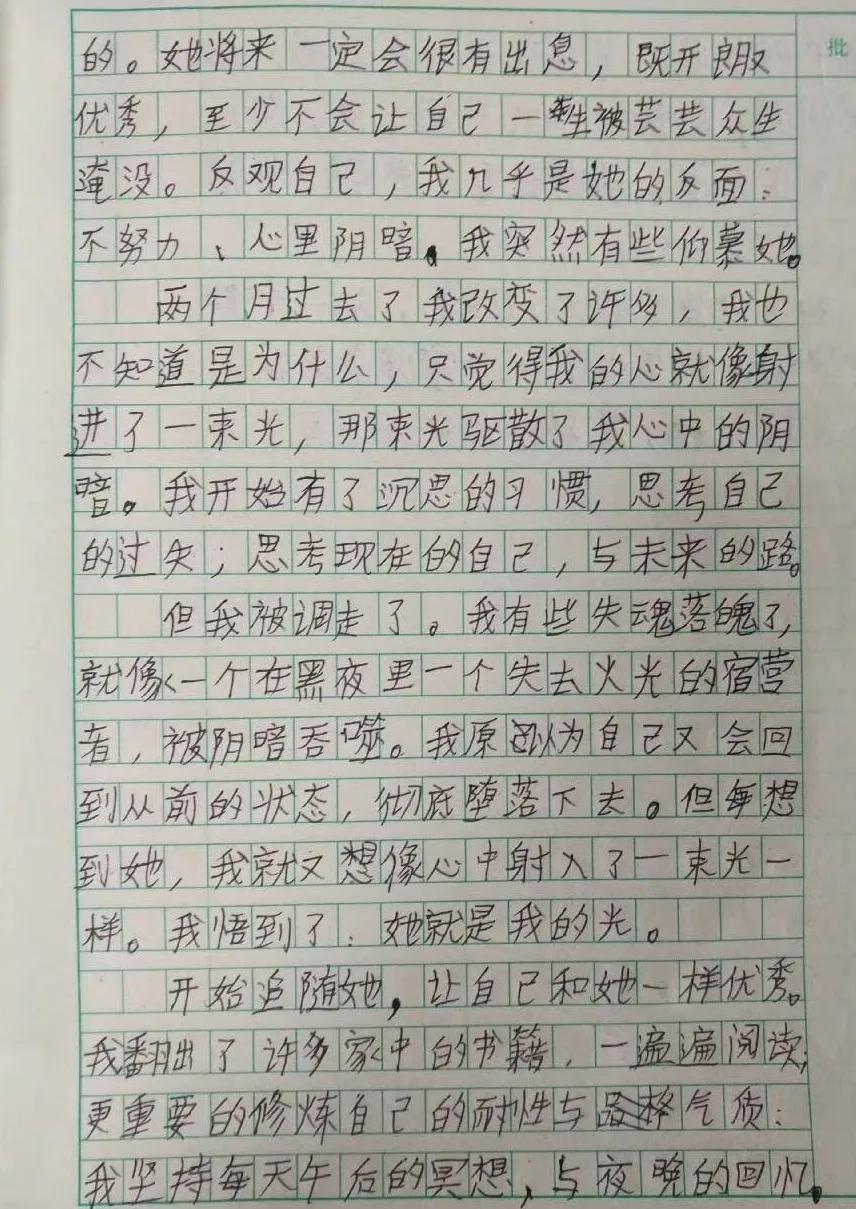 批
的。她将来一定会很有出息，既开良取
优秀，至少不会让自己一生被芸芸众生
淹没。反观自己，我几乎是她的反面：
不努力、心里阴暗。我突然有些仰慕她。
两个月过去了我改变了许多，我也
不知道是为什么，只觉得我的心就像射
进了一束光，那束光驱散了我心中的阴
暗。我开始有了沉思的习惯，思考自己
的过失；思考现在的自己，与未来的路。
但我被调走了。我有些失魂落魄了，
就像一个在黑夜里一个失去火光的宿营
者，被阴暗吞噬。我原以为自己又会回
到从前的状态，彻底堕落下去。但每想
到她，我就又想像心中射入了一束光一
样。我悟到了：她就是我的光。
开始追随她，让自己和她一样优秀。
我翻出了许多家中的书籍，一遍遍阅读；
更重要的修炼自己的耐性与品格气质：
我坚持每天午后的冥想，与夜晚的回忆。